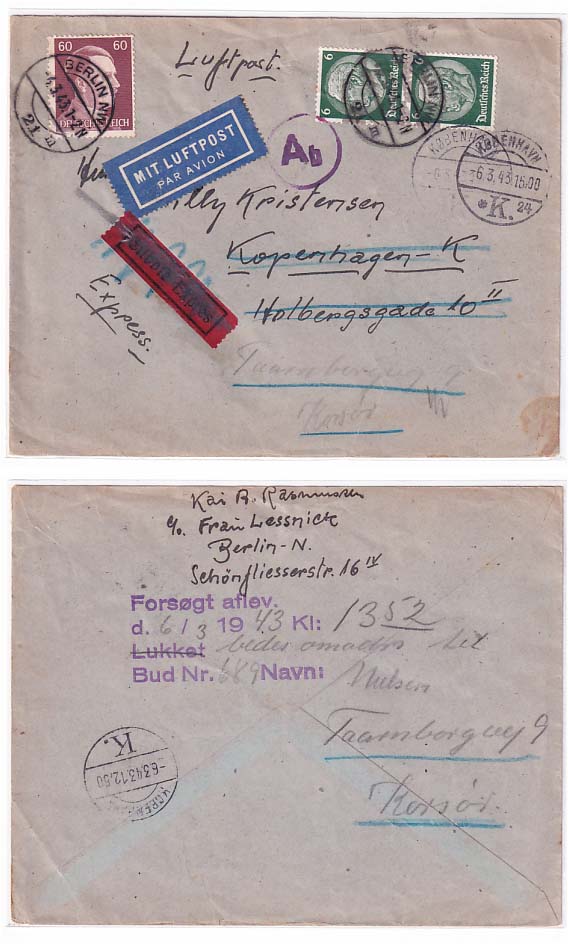 Luftpost.
60 60
BERLIN NW
21 m
6 6
Deutsches Reich
Deutsches Reich
MIT LUFTPOST
PAR AVION
Ab
KØBENHAVN
-6.3.43 15.00
*K. 24
Willy Kristensen
Kopenhagen-K
Holbergsgade 10 II
Express.
Taarnborgvej 9
Korsør
Kai R. Rasmussen
c/o. Frau Lessnick
Berlin-N.
Schönfliesserstr. 16 IV
Forsøgt aflev.
d. 6 / 3 19 43 Kl: 1352
Lukket bedes omadrs til
Bud Nr. 689 Navn:
Nielsen
Taarnborgvej 9
Korsør.
K.
-6.3.43.12.50